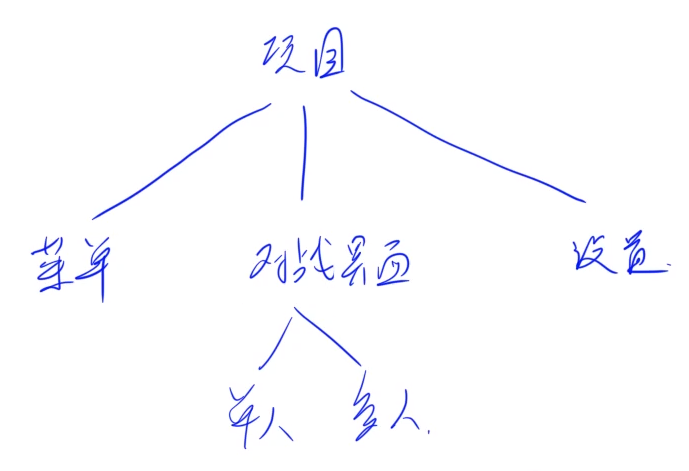 项目
菜单
对战界面
设置.
单人
多人.